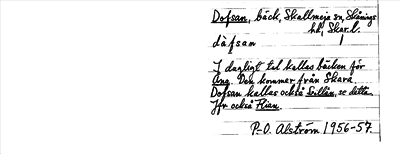 Dofsan, bäck, Skallmeja sn, Skånings
hd, Skar.l.
dåfsan
I dagligt tal kallas bäcken för
Ån. Den kommer från Skara.
Dofsan kallas också Svillån, se detta.
Jfr också Flian.
P-O. Alström 1956-57.